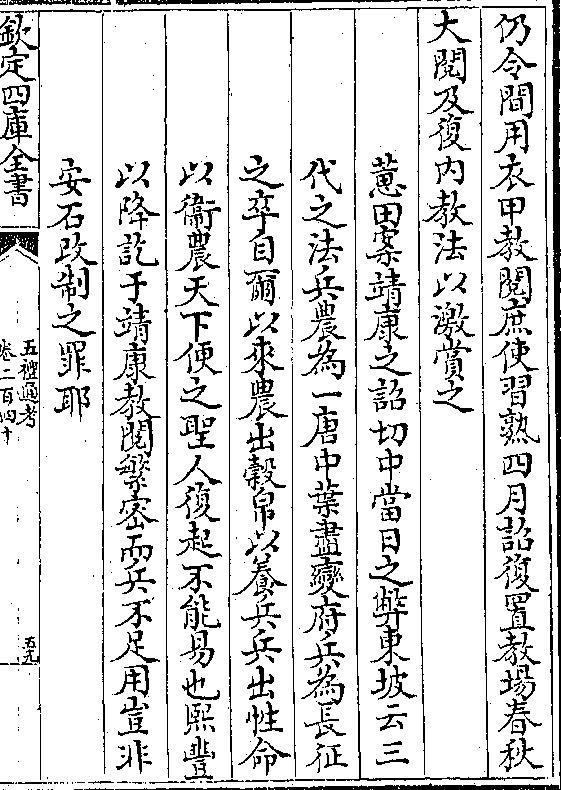 仍令間用衣甲教閱庶使習熟四月詔復置教場春秋
大閱及復內教法以激賞之
蕙田案靖康之詔切中當日之弊東坡云三
代之法兵農為一唐中葉盡變府兵為長征
之卒自爾以來農出穀帛以養兵兵出性命
以衞農天下便之聖人復起不能易也熙豐
以降訖于靖康教閱繁密而兵不足用豈非
安石改制之罪耶
欽定四庫全書
五禮通考
卷二百四十
五九